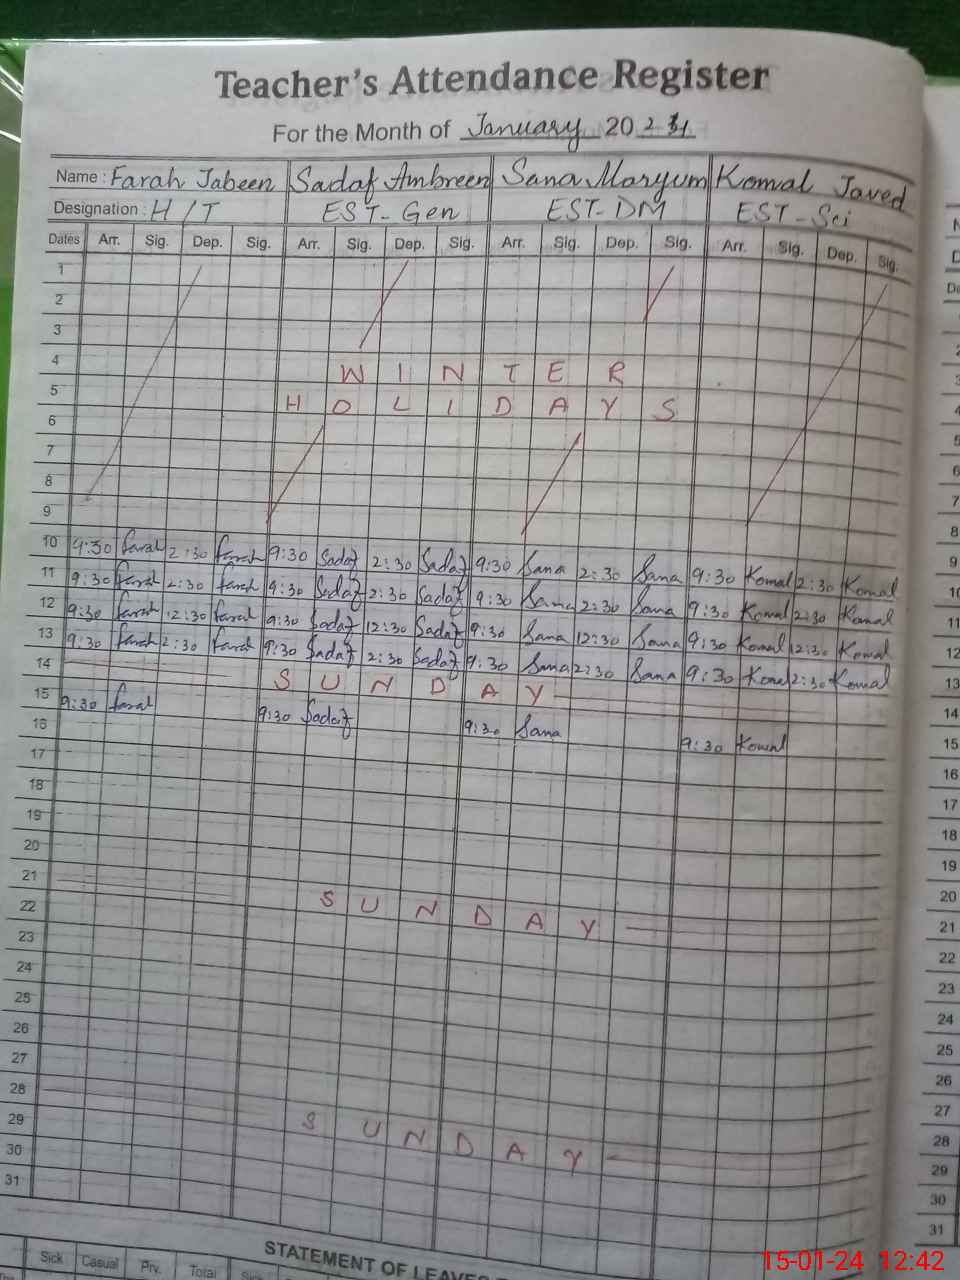 Teacher's Attendance Register
For the Month of January 20
Name : Farah Jabeen Sadaf Ambreen Sana Maryum Komal Javed
Designation : H/T EST-Gen EST-DM EST-Sci
Dates Arr. Sig. Dep. Sig. Arr. Sig. Dep. Sig. Arr. Sig. Dep. Sig. Arr. Sig. Dep. Sig.
1
2
3
4 WINTER
5 HOLIDAYS
6
7
8
9
10 9:30 Farah 2:30 Farah 9:30 Sadaf 2:30 Sadaf 9:30 Sana 2:30 Sana 9:30 Komal 2:30 Komal
11 9:30 Farah 2:30 Farah 9:30 Sadaf 2:30 Sadaf 9:30 Sana 2:30 Sana 9:30 Komal 2:30 Komal
12 9:30 Farah 12:30 Farah 9:30 Sadaf 12:30 Sadaf 9:30 Sana 12:30 Sana 9:30 Komal 12:30 Komal
13 9:30 Farah 2:30 Farah 9:30 Sadaf 2:30 Sadaf 9:30 Sana 2:30 Sana 9:30 Komal 2:30 Komal
14 SUNDAY
15 9:30 Farah 9:30 Sadaf 9:30 Sana 9:30 Komal
16
17
18
19
20
21 SUNDAY
22
23
24
25
26
27
28 SUNDAY
29
30
31
STATEMENT OF LEAVES
Sick Casual Prv. Total Sick
15-01-24 12:42
9
10
11
12
13
14
15
16
17
18
19
20
21
22
23
24
25
26
27
28
29
30
31